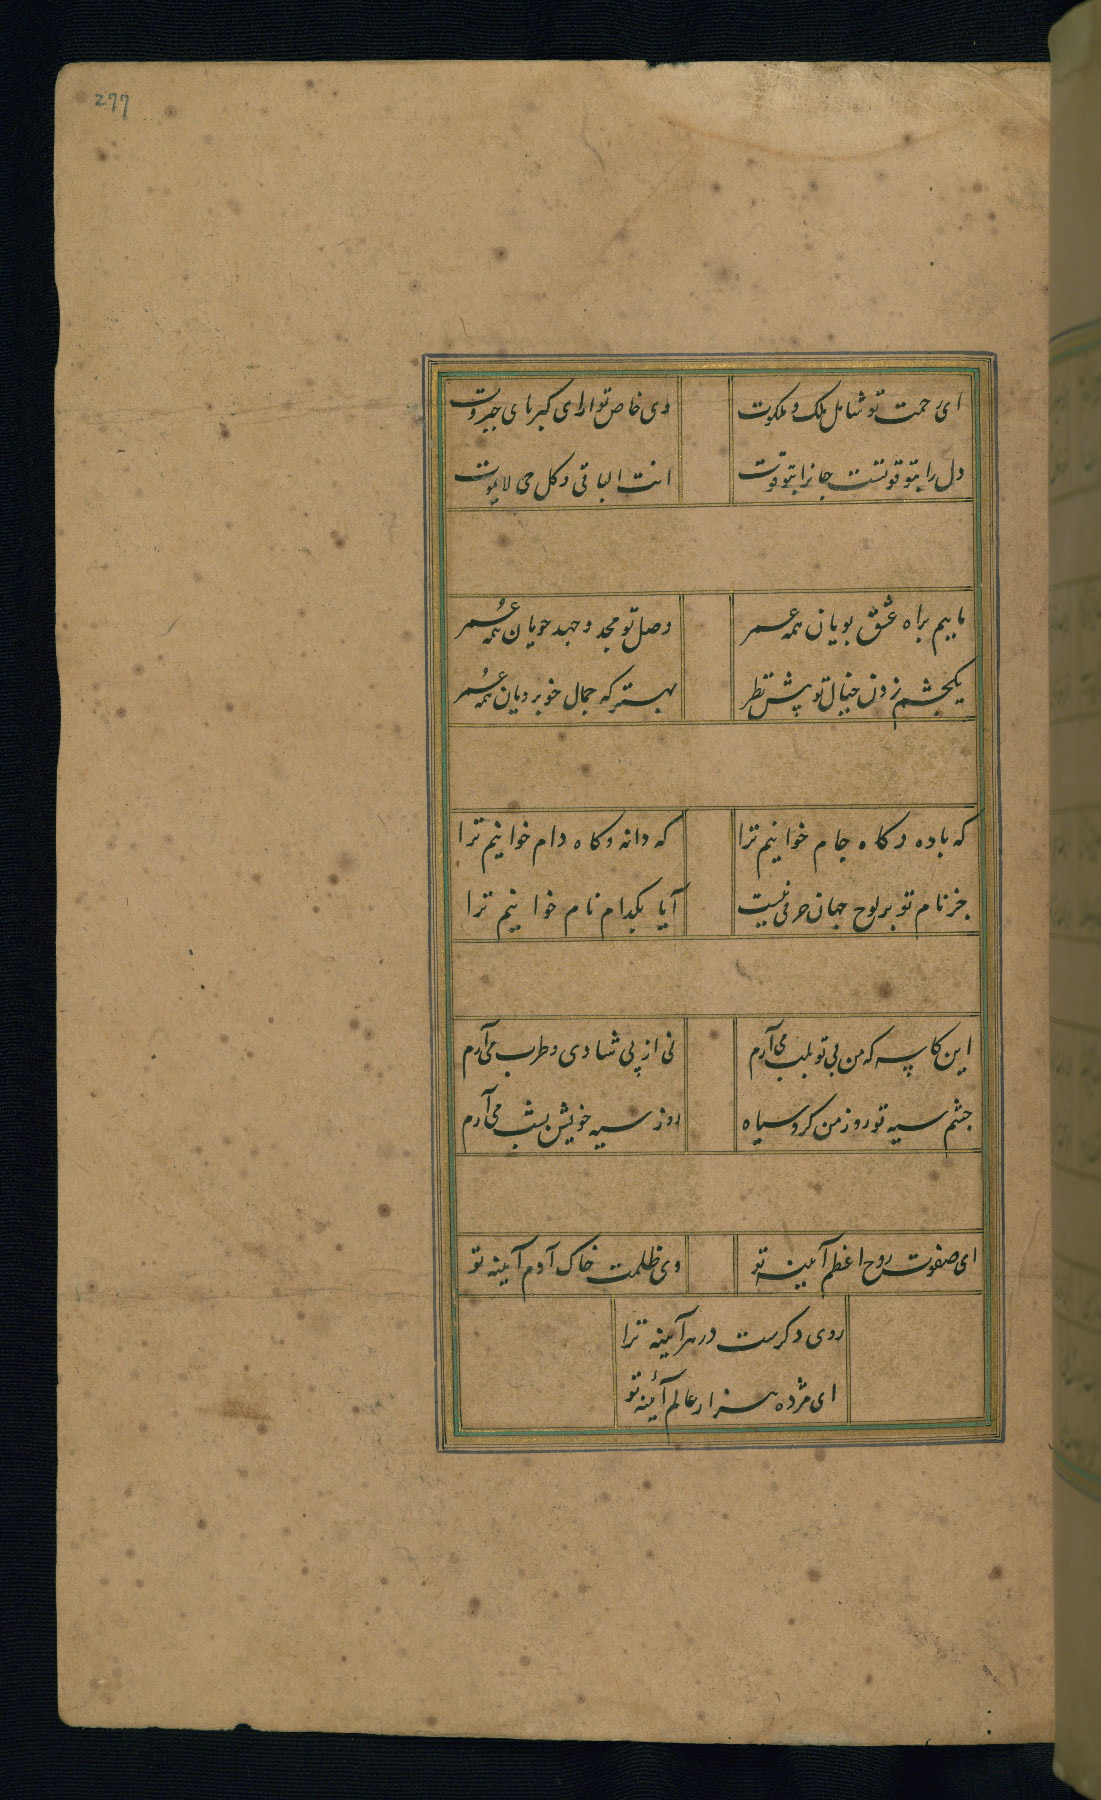 277
ای رحمت تو شامل ملک و ملکوت
وی خاص تو ارای کبریای جبروت
دل را بتو قوتست جانرا بتو قوت
انت الباقی و کل حی لا یموت
ماییم براه عشق پویان همه عمر
وصل تو بجد و جهد جویان همه عمر
یکچشم زدن خیال تو پیش نظر
بهتر که جمال خوبرویان همه عمر
که باده و کاه جام خوانیم ترا
که دانه و کاه دام خوانیم ترا
جز نام تو بر لوح جهان حرفی نیست
آیا بکدام نام خوانیم ترا
این کاسه که من بی تو بلب می آرم
نی از پی شادی و طرب می آرم
چشم سیه تو روز من کرد سیاه
روز سیه خویش بشب می آرم
ای صفوت روح اعظم آیینه تو
وی ظلمت خاک آدم آیینه تو
روی دکرست در هر آیینه ترا
ای مژده هزار عالم آئینه تو